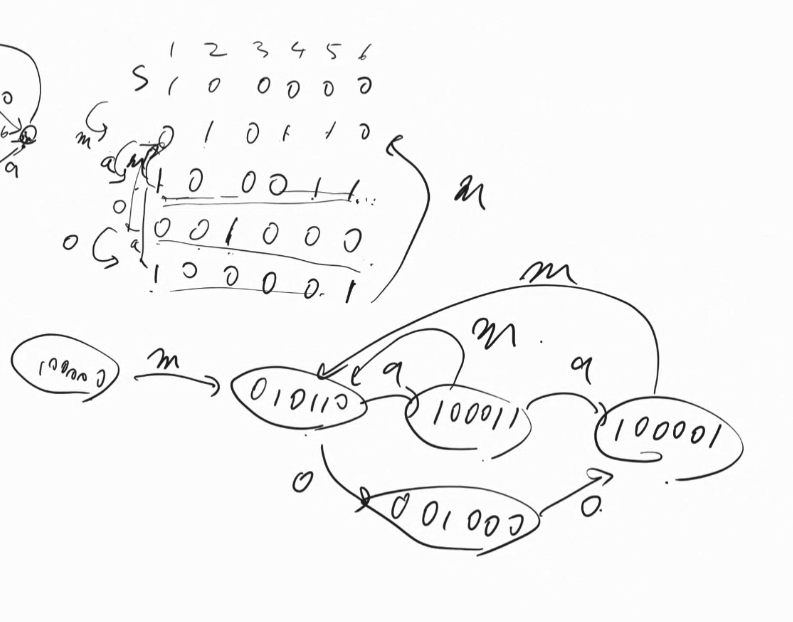 1 2 3 4 5 6
S 1 0 0 0 0 0
0
m 0 1 0 1 1 0
a
a 1 0 0 0 1 1
m
0
0 0 0 1 0 0 0
a
1 0 0 0 0 1
m
m
100000 m 010110 a 100011 a 100001
0 001000 0